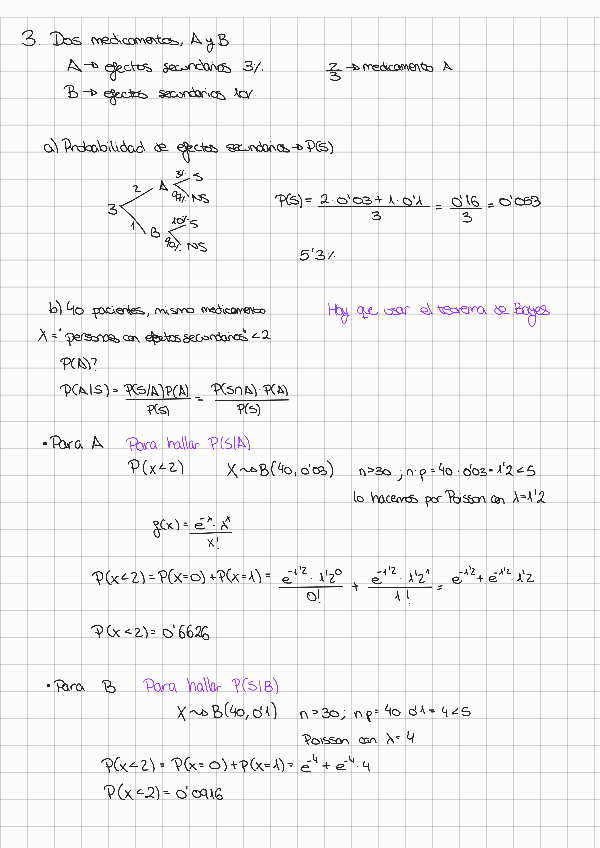 3. Dos medicamentos, A y B
A → efectos secundarios 3% 2/3 → medicamento A
B → efectos secundarios 10%
a) Probabilidad de efectos secundarios → P(S)
3% S
2 A
97% NS
3
P(S) = (2·0'03 + 1·0'1)/3 = 0'16/3 = 0'053
1 B
10% S
90% NS
5'3%
b) 40 pacientes, mismo medicamento Hay que usar el teorema de Bayes
X = "personas con efectos secundarios" < 2
P(A)?
P(A|S) = P(S/A)P(A)/P(S) = P(S∩A)·P(A)/P(S)
• Para A Para hallar P(S|A)
P(x<2) X~B(40, 0'03) n>30 ; n·p = 40·0'03 = 1'2 < 5
lo hacemos por Poisson con λ=1'2
f(x) = e^-λ · λ^x / x!
P(x<2) = P(x=0) + P(x=1) = e^-1'2 · 1'2^0 / 0! + e^-1'2 · 1'2^1 / 1! = e^-1'2 + e^-1'2 · 1'2
P(x<2) = 0'6626
• Para B Para hallar P(S|B)
X~B(40, 0'1) n>30; n·p = 40·0'1 = 4 < 5
Poisson con λ = 4
P(x<2) = P(x=0) + P(x=1) = e^-4 + e^-4 · 4
P(x<2) = 0'0916